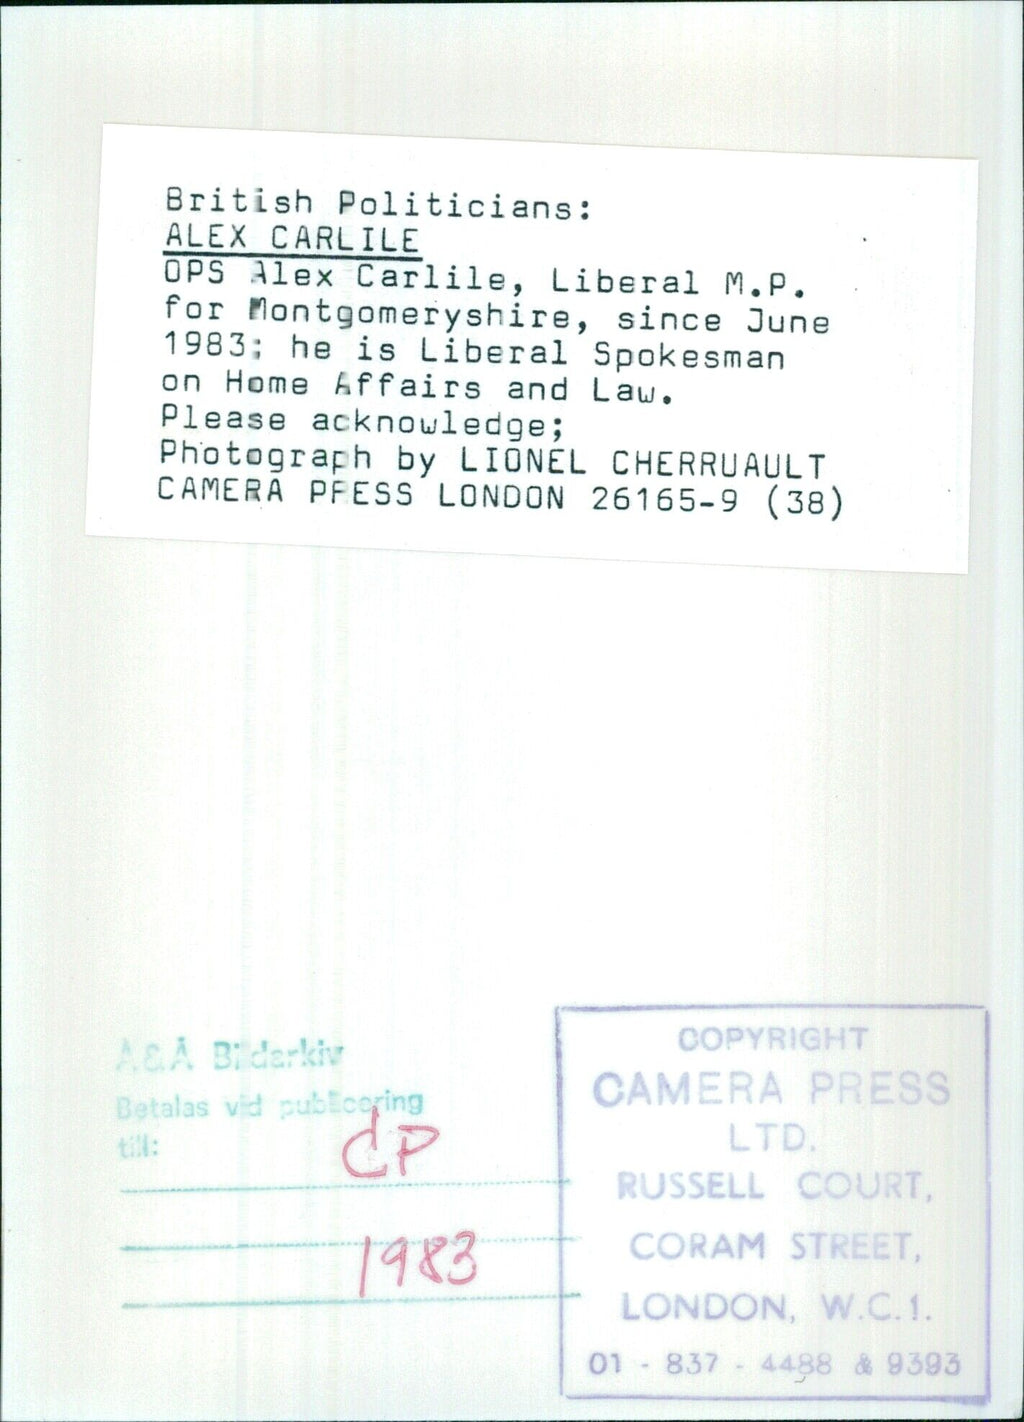 British Politicians:
ALEX CARLILE
OPS Alex Carlile, Liberal M.P.
for Montgomeryshire, since June
1983; he is Liberal Spokesman
on Home Affairs and Law.
Please acknowledge;
Photograph by LIONEL CHERRUAULT
CAMERA PRESS LONDON 26165-9 (38)
A&Å Bildarkiv
Betalas vid publicering
till:
CP
1983
COPYRIGHT
CAMERA PRESS
LTD.
RUSSELL COURT,
CORAM STREET,
LONDON, W.C.1.
01 - 837 - 4488 & 9393